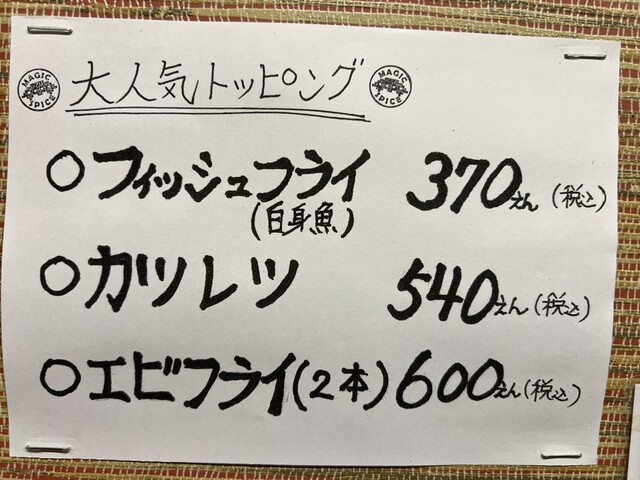 MAGIC SPICE 大人気トッピング MAGIC SPICE
○フィッシュフライ 370えん(税込)
(白身魚)
○カツレツ 540えん(税込)
○エビフライ(2本) 600えん(税込)